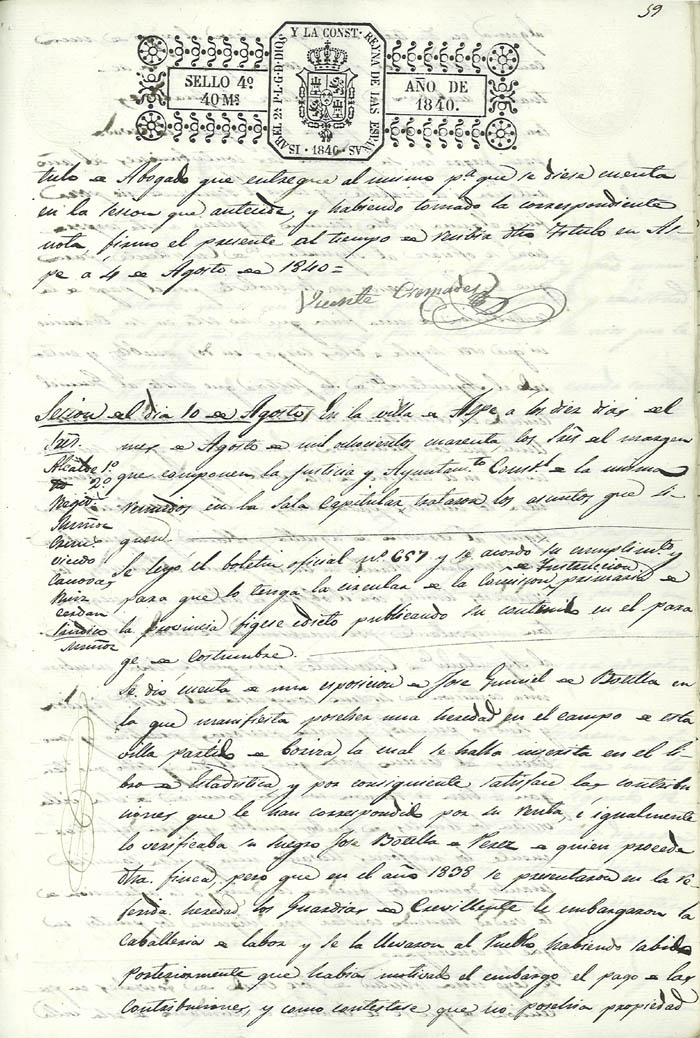 59
ISABEL 2ª P. L. G. D. DIOS Y LA CONST. REYNA DE LAS ESPAÑAS · 1840 ·
SELLO 4º
40 Ms
AÑO DE
1840.
tulo de Abogado que entregue al mismo pª que se diese cuenta
en la sesion que antecede, y habiendo tomado la correspondiente
nota, firmo el presente al tiempo de recibir dho titulo en As-
pe a 4 de Agosto de 1840=
Vicente Cremades
Sesion del dia 10 de Agosto
En la villa de Aspe a los diez dias del
Sres.
mes de Agosto de mil ochocientos cuarenta, los Sres al margen
Alcalde 1º
2º
que componen la Justicia y Ayuntamto Constl de la misma
Regidores
reunidos en la Sala Capitular trataron los asuntos que si-
Muñoz
guen.
viendo
Se leyó el boletin oficial nº 657 y se acordo su cumplimto y
Canovas
para que lo tenga la circular de la Comision de Instruccion primaria de
Ruiz
Cerdan
Sindico
la provincia figese edicto publicando su contenido en el para
Muñoz
ge de costumbre.
Se dio cuenta de una esposicion de Jose Gumiel de Botella en
la que manifiesta poseher una heredad en el campo de esta
villa partido de la cual se halla inserta en el li-
bro de Estadistica, y por consiguiente satisface las contribu
ciones que le han correspondido por su renta, é igualmente
lo verificaba su suegro Jose Botella de Perez de quien procede
dha. finca, pero que en el año 1838 se presentaron en la re
ferida heredad los Guardias de Crevillente le embargaron la
Caballeria de labor y se la llevaron al Pueblo habiendo sabido
posteriormente que habia motivado el embargo el pago de las
Contribuciones, y como contestase que no posehia propiedad